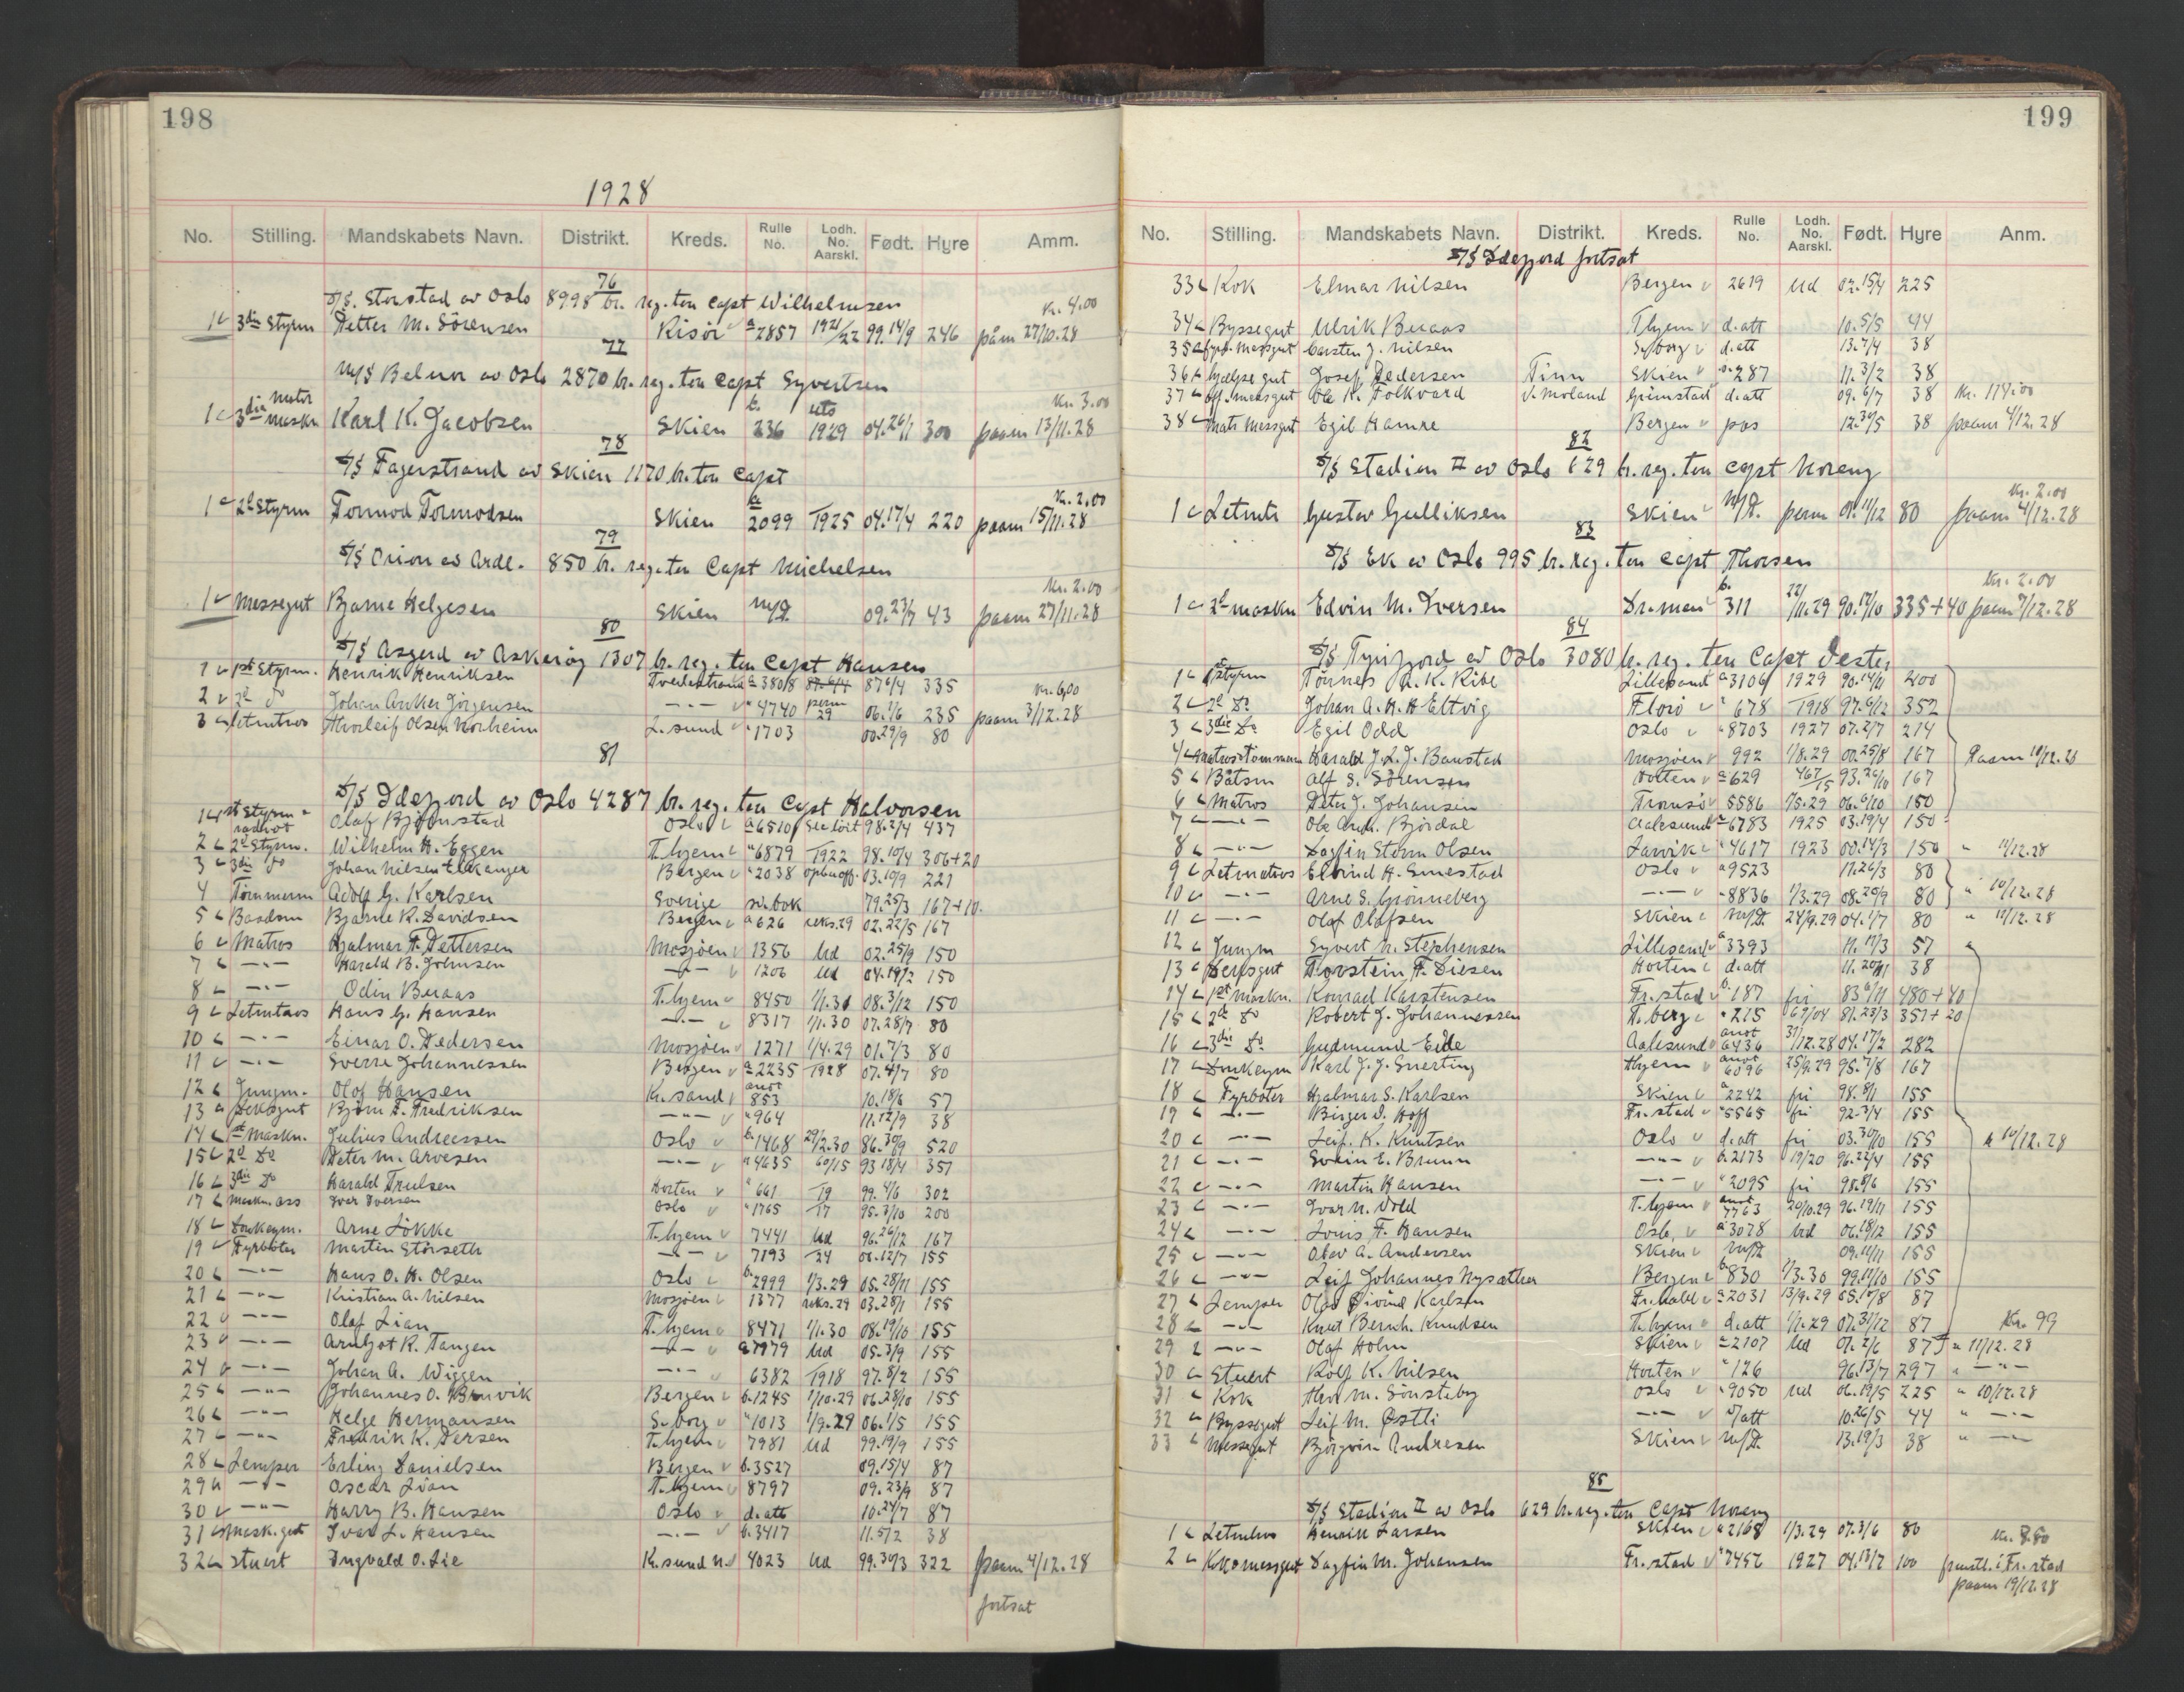 198
1928
No. Stilling. Mandskabets Navn. Distrikt. Kreds. Rulle No. Lodh. No. Aarskl. Født. Hyre Amm.
76
S/S. Storstad av Oslo 8998 br. reg. ton Capt Wilhelmsen kr. 4.00
1 3die Styrm Petter M. Sörensen Risör a 2857 1921/22 99.14/9 246 paam 27/10.28
77
M/S Belnor av Oslo 2870 br. reg. ton Capt Syvertsen
1 3die motor maskn Karl K. Jacobsen Skien b. 236 uts 1929 04.26/1 300 kr. 3.00 paam 13/11.28
78
S/S Fagerstrand av Skien 1170 br. ton Capt
1 2d Styrm Tormod Tormodsen Skien a 2099 1925 04.17/4 220 kr. 2.00 paam 15/11.28
79
S/S Orion av Ardl. 850 br. reg. ton Capt Michelsen
1 Messegut Bjarne Helgesen Skien 09.23/7 43 kr. 2.00 paam 27/11.28
80
S/S Asgerd av Askeröy 1307 br. reg. ton Capt Hansen
1 1st Styrm. Henrik Henriksen Tvedestrand a 3808 87 6/4 335
2 2d do Johan Anker Jörgensen —"— " 4740 perm 29 06.1/6 235 kr. 6,00 paam 3/12.28
3 Letmtros Thorleif Olsen Norheim L.sund " 1703 00.29/9 80
81
S/S Idefjord av Oslo 4287 br. reg. ton Capt Halvorsen
1 1st Styrm radiot Olaf Björnstad Oslo a 6510 98.2/4 437
2 2d Styrm. Wilhelm H. Eggen T.hjem " 6879 1922 98.10/4 306+20
3 3die do Johan Nilsen Elvanger Bergen " 2038 03.10/9 221
4 Tömmerm Adolf G. Karlsen Sverige sv. bok 79.25/3 167+10.
5 Baadsm Bjarne R. Davidsen Bergen a 626 seks.29 02.22/5 167
6 Matros Hjalmar F. Pettersen Mosjöen 1356 Ud 02.25/9 150
7 —"— Harald B. Johnsen —"— 1206 Ud 04.19/2 150
8 —"— Odin Buaas T.hjem 8450 1/1.31 08.3/12 150
9 Letmtros Hans G. Hansen —"— 8317 1/1.30 07.28/7 80
10 —"— Einar O. Pedersen Mosjöen 1271 1/4.29 01.7/3 80
11 —"— Sverre Johannessen Bergen a 2235 1928 07.4/7 80
12 Jungm. Olof Hansen K.sand anot 853 10.18/6 57
13 Deksgut Björn F. Fredriksen —"— " 964 11.12/9 38
14 1st Maskn. Julius Andreassen Oslo b. 1468 29/2.30 86.30/9 520
15 2d Do Peter M. Arvesen —"— " 4635 60/15 93 18/4 357
16 3die Do Harald Trulsen Horten " 661 19 99.4/6 302
17 Maskn. ass Iver Iversen Oslo " 1765 17 95.3/10 200
18 Donkeym. Arne Løkke T.hjem 7441 Ud 96.26/12 167
19 Fyrböter Martin Störseth —"— 7193 24 06.12/7 155
20 —"— Hans O. H. Olsen Oslo b. 2999 1/3.29 05.28/11 155
21 —"— Kristian A. Nilsen Mosjöen 1377 seks.29 03.28/1 155
22 —"— Olaf Lian T.hjem 8471 1/1.30 08.19/10 155
23 —"— Arnljot R. Tangen —"— a 7979 Ud 05.3/9 155
24 —"— Johan A. Wiggen —"— 6382 1918 97.8/2 155
25 —"— Johannes O. Burvik Bergen b. 1245 1/10.29 06.28/10 155
26 —"— Helge Hermansen S.borg " 1013 1/9.29 06.1/5 155
27 —"— Fredrik K. Persen T.hjem 7981 Ud 99.19/9 155
28 Lemper Erling Danielsen Bergen b. 3527 09.15/4 87
29 —"— Oscar Lian T.hjem 8797 09.23/9 87
30 —"— Harry B. Hansen Oslo d.att 10.24/7 87
31 Mask. gut Ivar L. Hansen —"— b. 3417 11.5/2 38
32 Stuert Ingvald O. Lie K.sund N. 4023 Ud 99.30/3 322 paam 4/12.28
fortsat
199
No. Stilling. Mandskabets Navn. Distrikt. Kreds. Rulle No. Lodh. No. Aarskl. Født. Hyre Anm.
S/S Idefjord fortsat
33 Kok Elmar Nilsen Bergen 2619 Ud 02.15/4 225
34 Byssegut Ulrik Buaas T.hjem d.att 10.5/5 44
35 Messegut Carsten J. Nilsen S.borg d.att 13.7/4 38
36 hjælpe gut Josef Pedersen Tinn Skien 287 11.3/2 38
37 off. messgut Ole K. Folkvard Ö. Moland Grimstad d.att 09.6/7 38 kr. 114.00
38 Mats Messgut Egil Hamre Bergen pas 12.30/5 38 paam 4/12.28
82
S/S Stadion II av Oslo 629 br. reg. ton Capt Noreng
1 Letmtr Gustav Gulliksen Skien perm 01.11/12 80 kr. 2.00 paam 4/12.28
83
S/S Ek av Oslo 995 br. reg. ton Capt Thorsen
1 2d maskn Edvin M. Iversen Dr.men b. 311 22/11.29 90.17/10 335+40 kr. 2.00 paam 7/12.28
84
S/S Tyrifjord av Oslo 3080 br. reg. ton Capt Vester
1 1st Styrm Tönnes A. K. Ribe Lillesand a 3106 1929 90.14/11 400
2 2d Do Johan A. H. H Eltvig Florö " 678 1918 97.6/12 352
3 3die Do Egil Odd Oslo " 8703 1927 07.2/7 214
4 Matros Tömmerm Harald J. L. J. Baustad Mosjöen 992 1/8.29 00.25/8 167 Paam 10/12.28
5 Båtsm Alf S. Sörensen Horten a 629 467/15 93.26/10 167
6 Matros Peter J. Johansen Tromsö 5586 1/5.29 06.6/10 150
7 —"— Ole Andr. Björdal Aalesund a 6783 1925 03.19/4 150
8 —"— Dagfin Storm Olsen Larvik " 4617 1923 00.14/3 150 " 11/12.28
9 Letmatros Eivind H. Smestad Oslo a 9523 11.26/3 80
10 —"— Arne S. Grönneberg —"— " 8836 1/3.29 08.20/9 80 " 10/12.28
11 —"— Olaf Olafsen Skien 24/9.29 04.1/7 80 " 11/12.28
12 Jungm Syvert N. Stephensen Lillesand a 3393 11.17/3 57
13 Deksgut Torstein F. Diesen Horten d.att 11.20/11 38
14 1st Maskn. Konrad Karstensen Fr.stad b. 187 fri 83 6/11 480+40
15 2d Do Robert J. Johannessen T.berg " 215 67/04 81.23/3 357+20
16 3die Do Gudmund Eide Aalesund anot 6436 31/12.28 04.17/2 282
17 Donkeym Karl J. J. Snerting T.hjem anot 6096 25/9.29 95.7/8 167
18 Fyrböter Hjalmar S. Karlsen Skien a 2242 fri 98.8/1 155
19 —"— Birger D. Hoff Fr.stad " 5565 fri 92.3/4 155
20 —"— Leif. K. Knutsen Oslo d.att fri 03.30/10 155 " 10/12.28
21 —"— Svein E. Brunn —"— b. 2173 19/20 96.22/4 155
22 —"— Martin Hansen —"— " 2095 fri 98.8/6 155
23 —"— Ivar N. Vold T.hjem anot 7763 20/10.29 96.19/11 155
24 —"— Louis F. Hansen Oslo, a 3028 Ud 06.18/12 155
25 —"— Olav A. Andersen Skien 09.11/11 155
26 —"— Leif Johannes Nysæther Bergen b. 830 1/3.30 99.19/10 155
27 Lemper Olav Öivind Karlsen Fr.hald a 2031 13/9.29 05.10/8 87
28 —"— Knut Bernh. Knudsen T.hjem d.att 1/1.29 07.31/12 87 Kr. 99
29 —"— Olaf Holm Skien a 2107 Ud 07.2/6 87 " 11/12.28
30 Stuert Rolf K. Nilsen Horten " 126 96.13/7 297 " —"—
31 Kok Thv M. Sönsteby Oslo " 9050 Ud 06.19/5 225 " 10/12.28
32 Byssegut Leif M. Østli —"— d/att 10.26/5 44 " —"—
33 Messegut Björgvin Andresen Skien 13.19/3 38 " —"—
85
S/S Stadion II av Oslo 629 br. reg. ton Capt Noreng
1 Letmtros Henrik Larsen Skien a 2168 1/3.29 07.3/6 80 kr. 8.80
2 Kokomessgut Dagfin M. Johansen Fr.stad " 7456 1927 04.13/7 100 i Fr.stad
paam 19/12.28